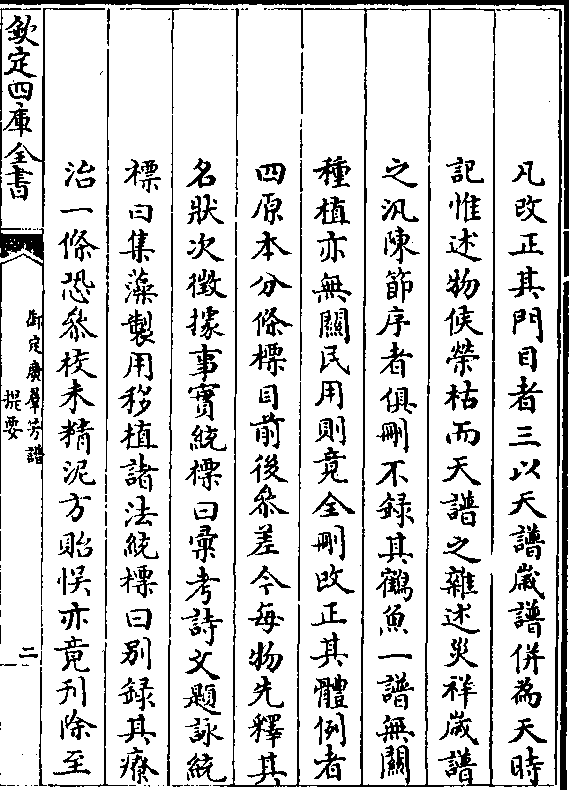 凡改正其門目者三以天譜嵗譜併為天時
記惟述物候榮枯而天譜之雜述災祥嵗譜
之汎陳節序者俱刪不録其鶴魚一譜無關
種植亦無闗民用則竟全刪改正其體例者
四原本分條標目前後叅差今每物先釋其
名狀次徵據事實統標曰彚考詩文題詠統
標曰集藻製用移植諸法統標曰别録其療
治一條恐叅校未精泥方貽悮亦竟刋除至
欽定四庫全書
御定廣羣芳譜
提要
二